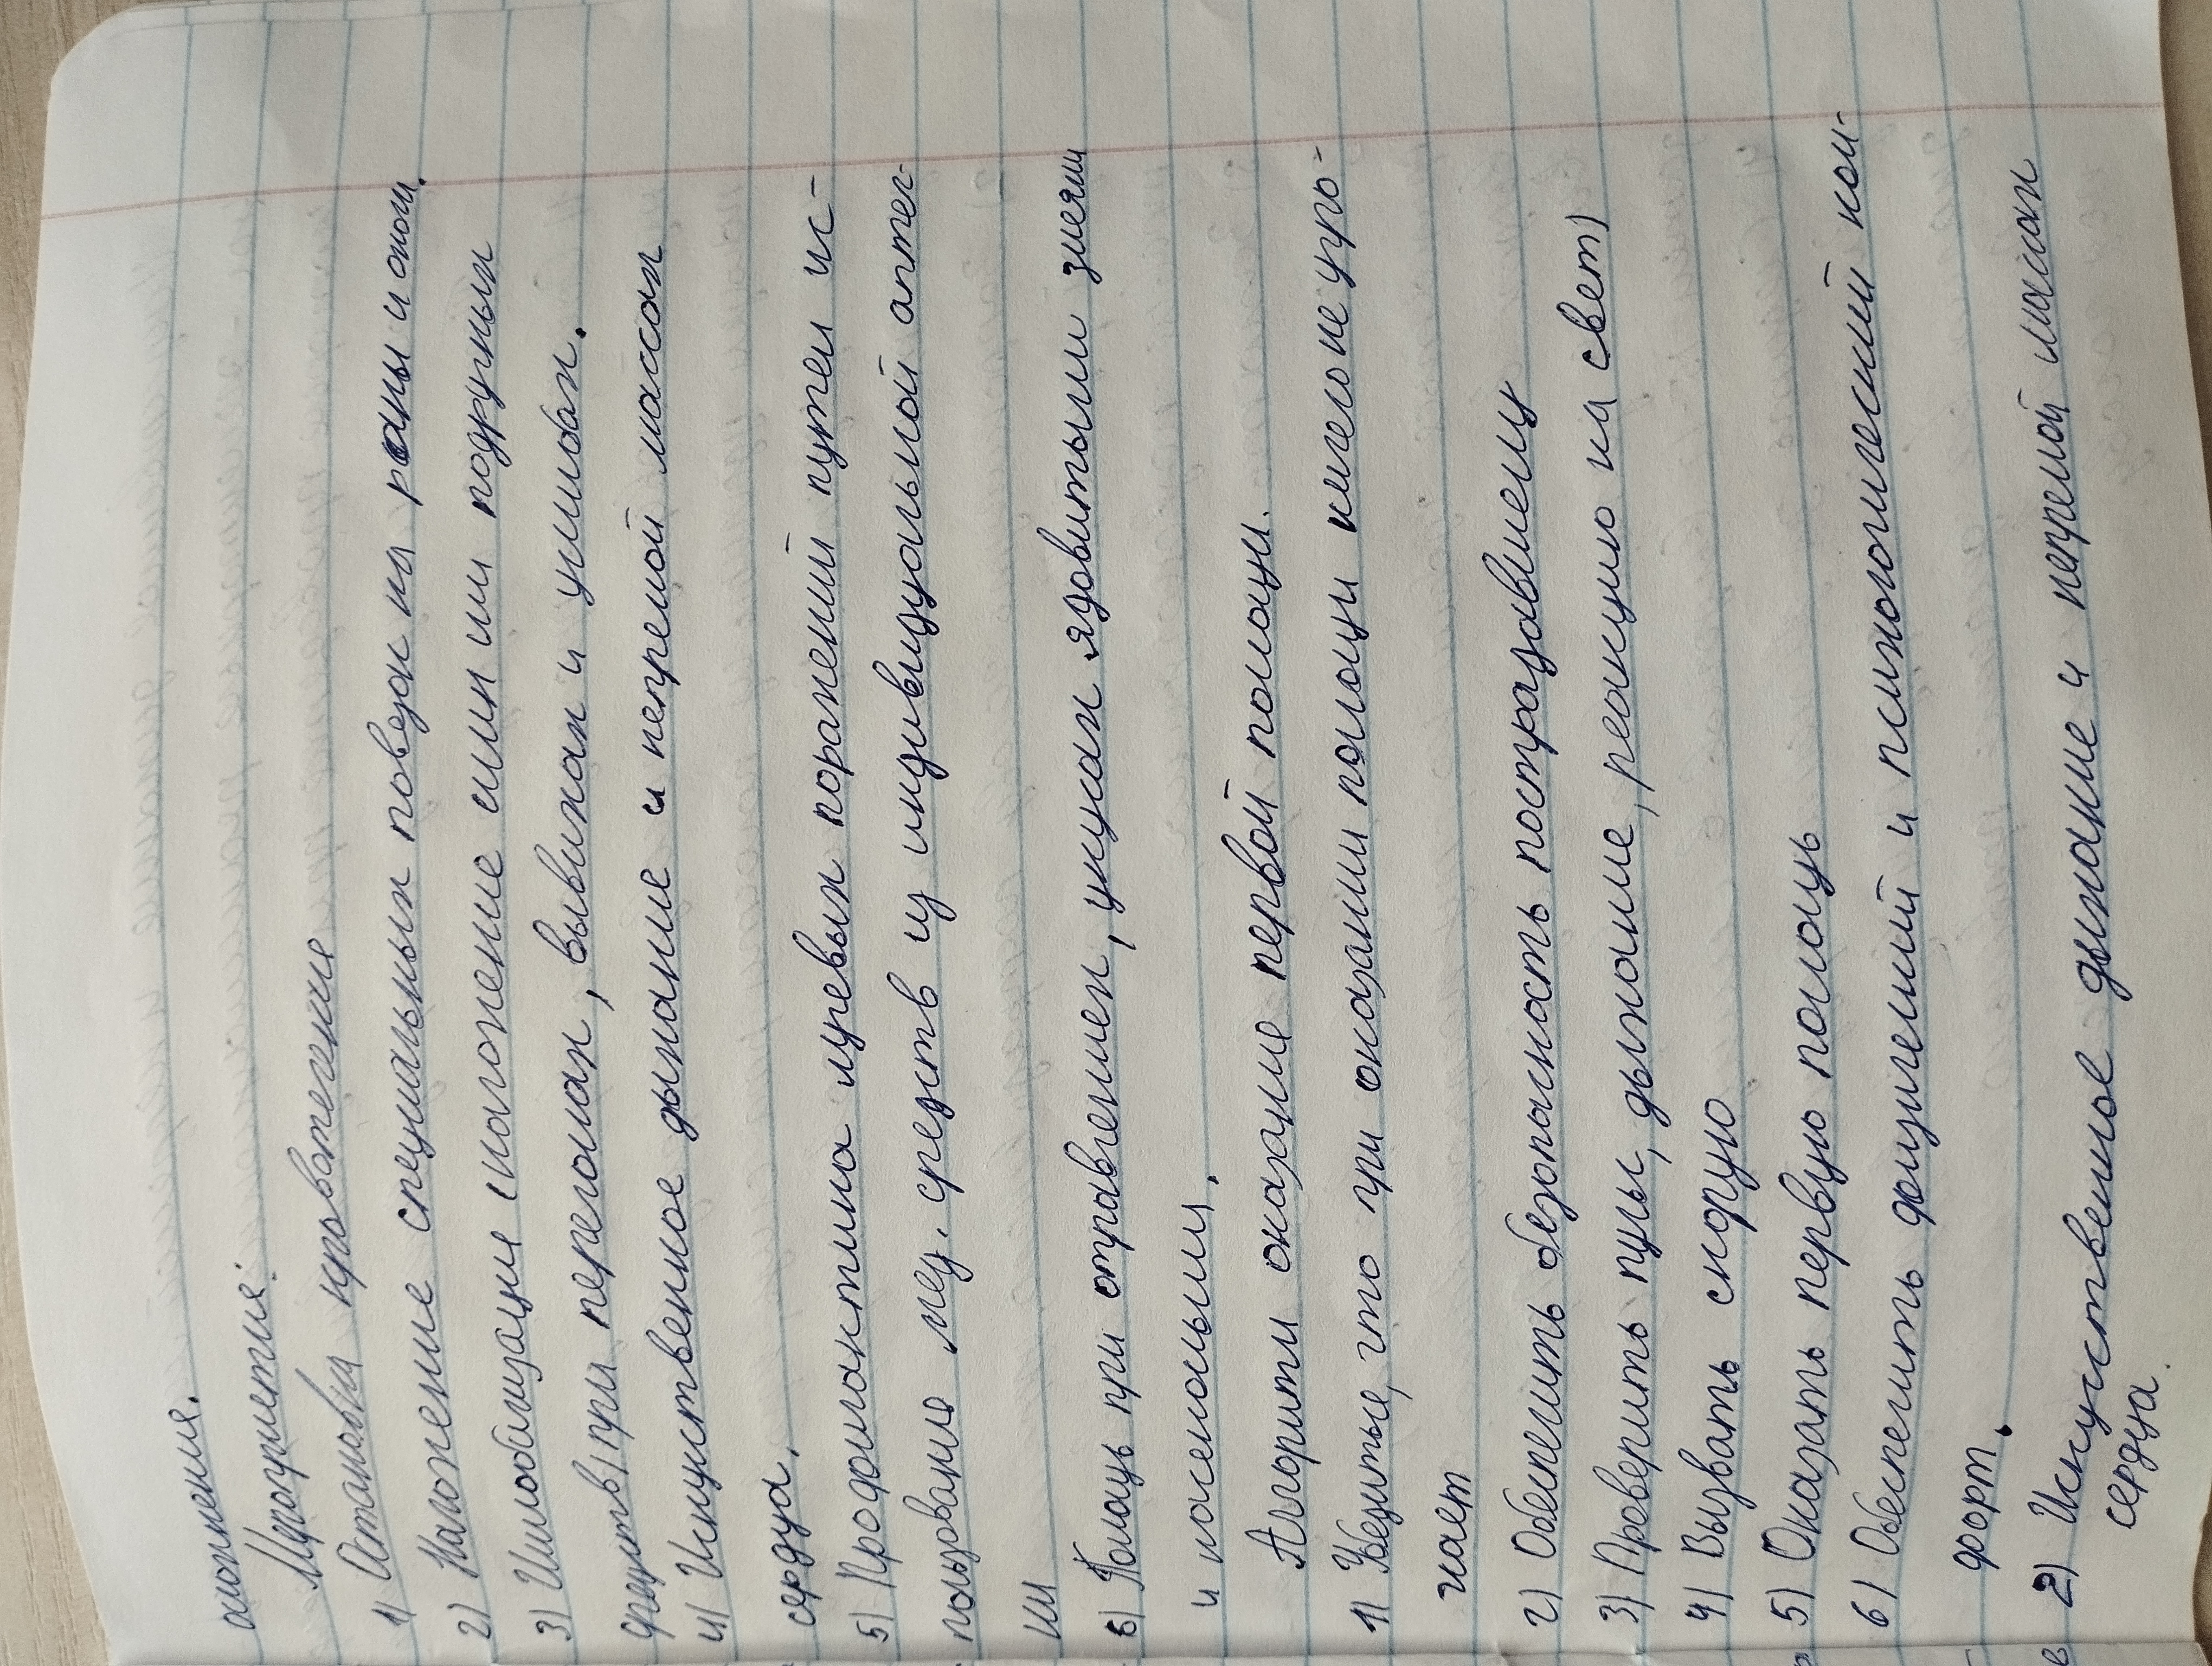 осложнения.
Мероприетие:
1) Астановка кровотечение
2) Наложение специальных повезок на раны и ожог.
3) Имобилизацие (наложение шин или подручных
средств) при переломах, вывихах и ушибах.
4) Искуственное дыхание и непремой массаж
сердца.
5) Профилактика лучевых поражений путем ис-
пользования мед. средств из индивидуальной аптеч-
ки
6) Помощь при отравлениях, укусах ядовитыми змеями
и насекомыми.
Алгоритм оказание первой помощи.
1) Убедитье, что при оказании помощи ничего не угро-
жает
2) Обеспечить безопасность пострадавшему
3) Проверить пульс, дыхание, реакцию на свет)
4) Вызвать скорую
5) Оказать первую помощь
6) Обеспечить физический и психологический ком-
форт.
2) Искуственное дыхание и непремой массаж
сердца.